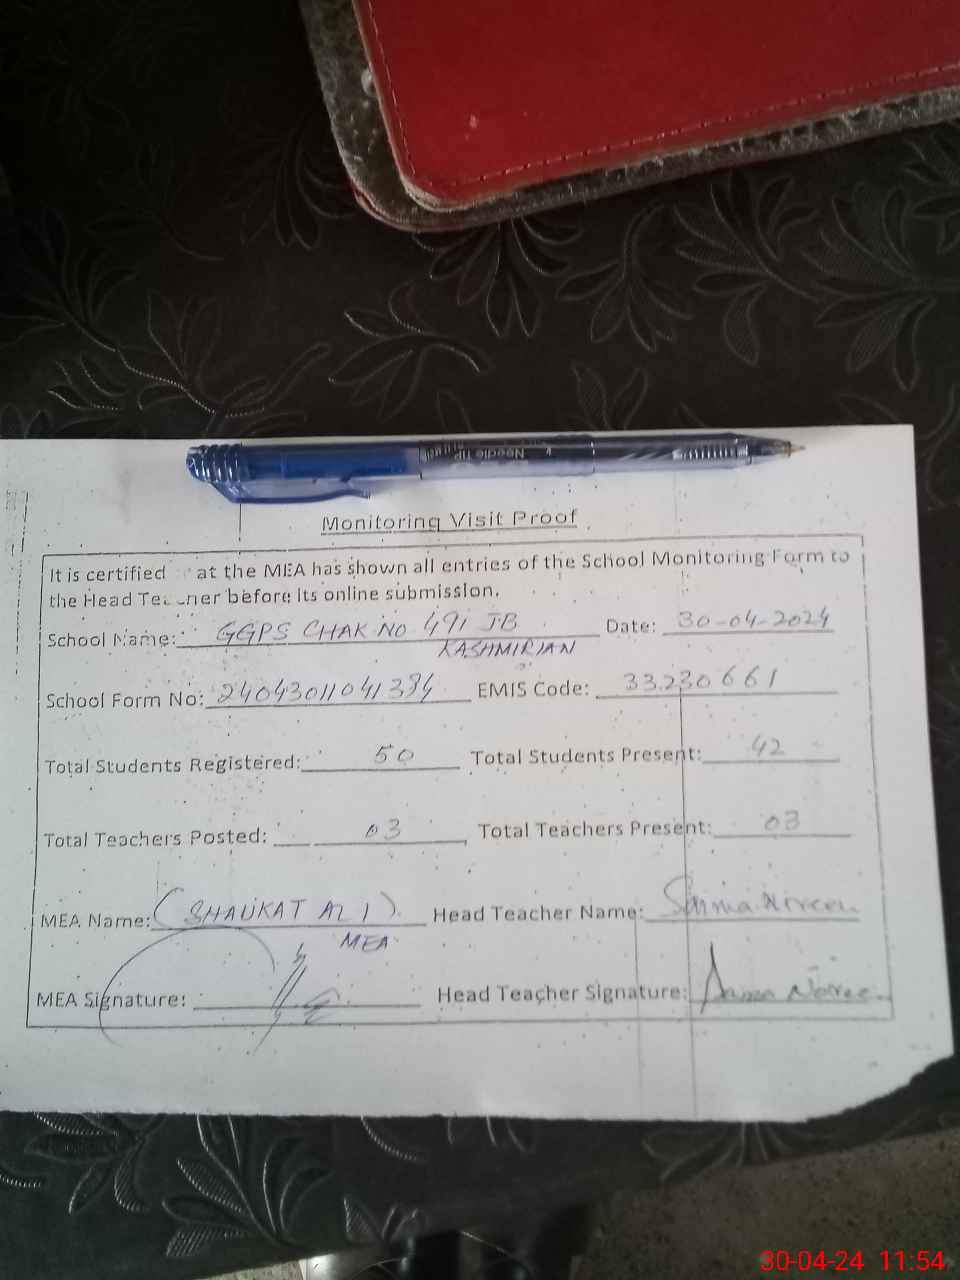 Needle TIP
Monitoring Visit Proof
It is certified at the MEA has shown all entries of the School Monitoring Form to
the Head Teacher before its online submission.
School Name: GGPS CHAK NO 491 JB Date: 30-04-2024
KASHMIRIAN
School Form No: EMIS Code: 33230661
Total Students Registered: 50 Total Students Present: 42
Total Teachers Posted: 03 Total Teachers Present: 03
MEA Name: (SHAUKAT ALI) Head Teacher Name: Saima
MEA
MEA Signature: Head Teacher Signature:
30-04-24 11:54